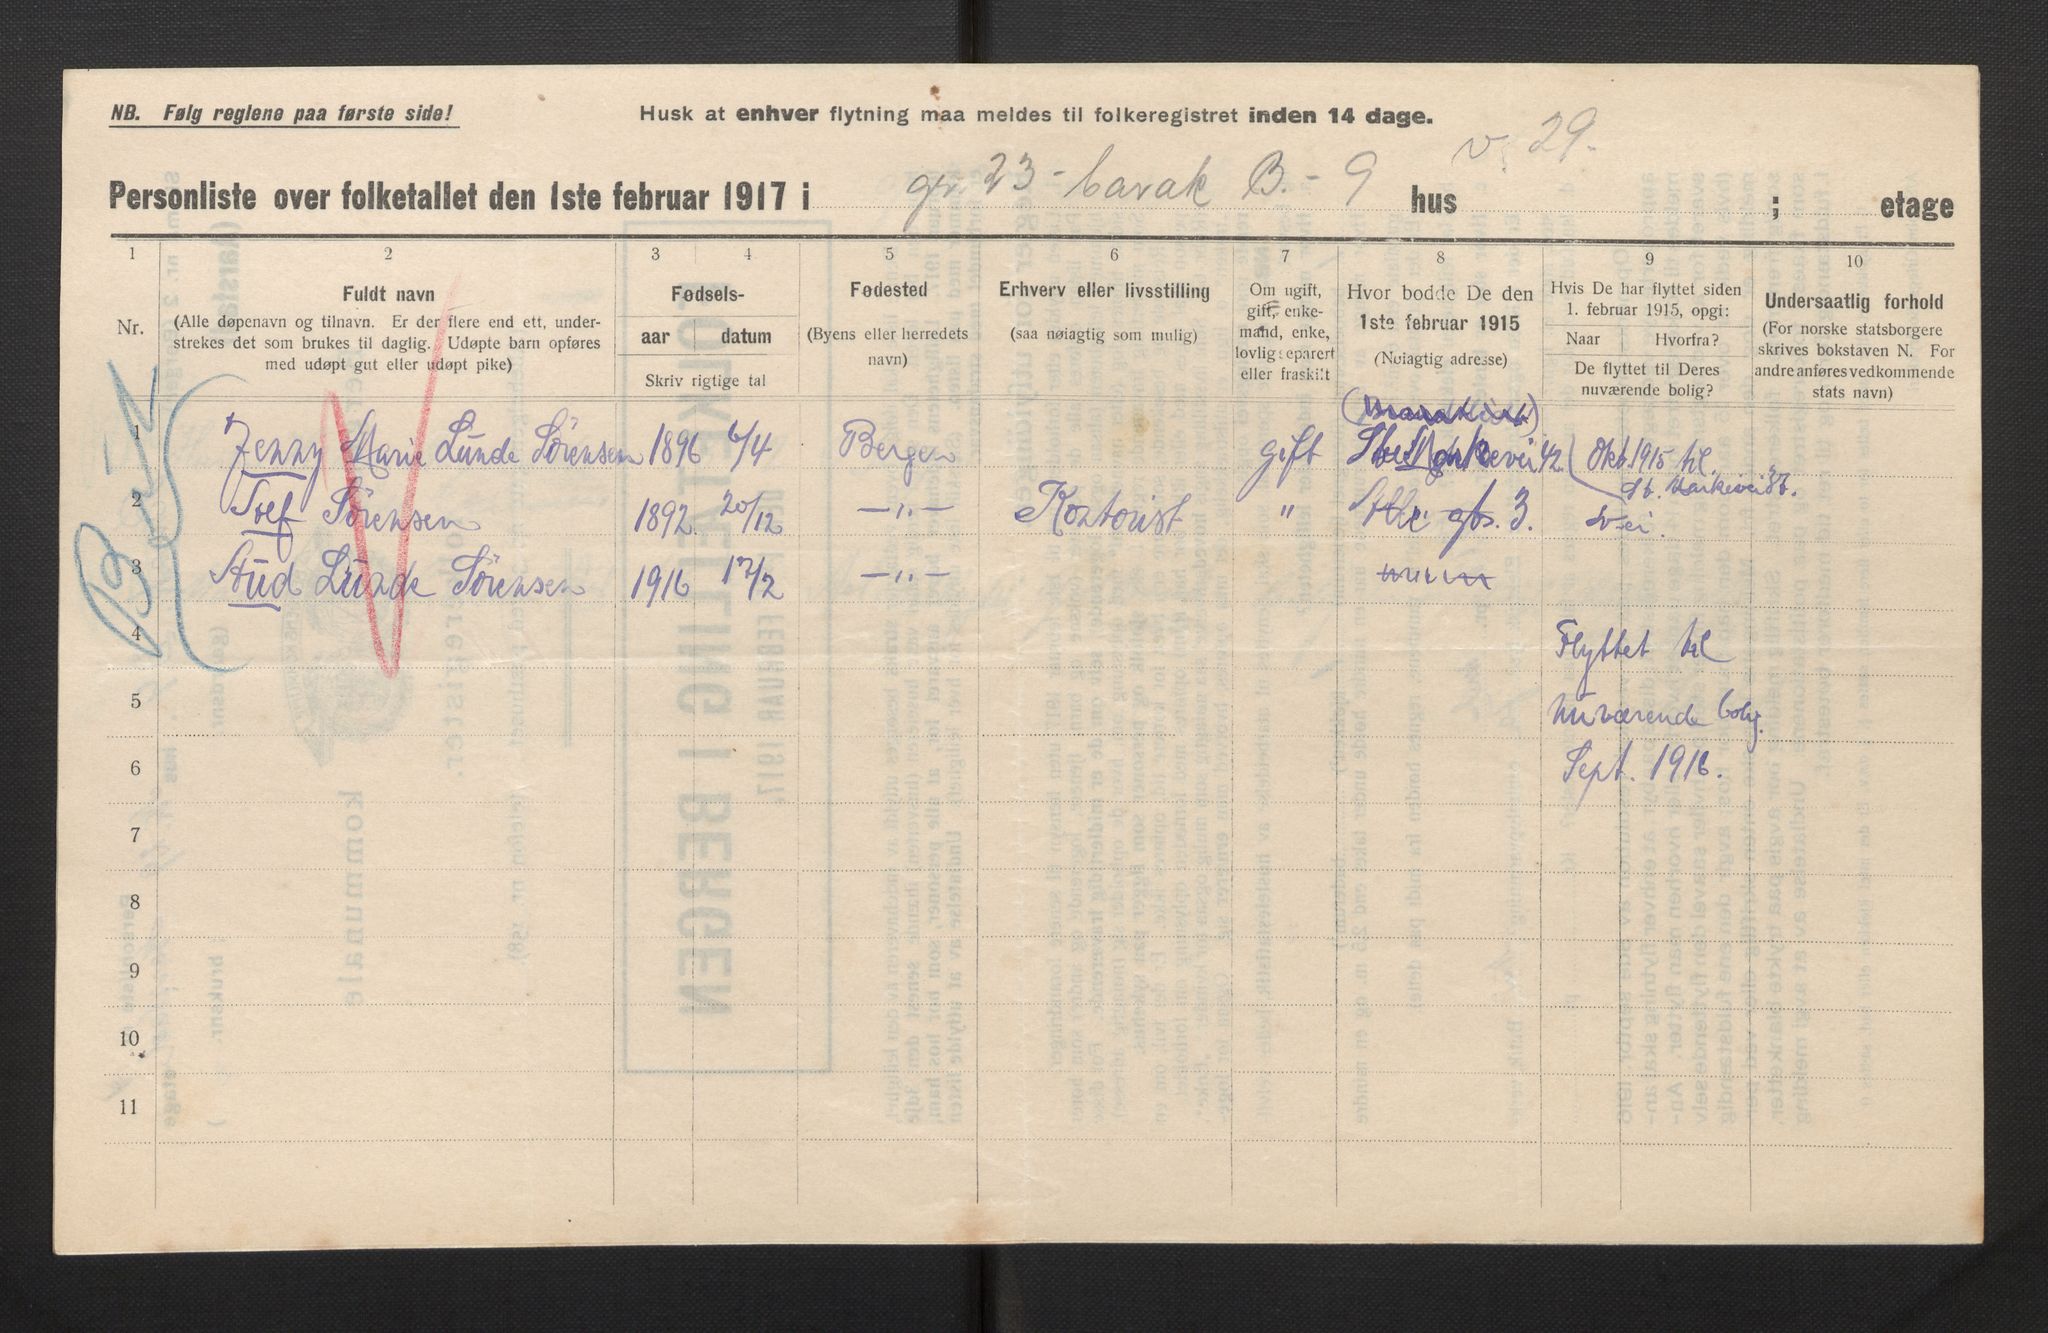 NB. Følg reglene paa første side!
Husk at enhver flytning maa meldes til folkeregistret inden 14 dage.
v. 29.
Personliste over folketallet den 1ste februar 1917 i gr. 23 - barak B. - 9 hus ; etage
1 2 3 4 5 6 7 8 9 10
Nr.
Fuldt navn
(Alle døpenavn og tilnavn. Er der flere end ett, under-
strekes det som brukes til daglig. Udøpte barn opføres
med udøpt gut eller udøpt pike)
Fødsels-
aar datum
Skriv rigtige tal
Fødested
(Byens eller herredets
navn)
Erhverv eller livsstilling
(saa nøiagtig som mulig)
Om ugift,
gift, enke-
mand, enke,
lovlig separert
eller fraskilt
Hvor bodde De den
1ste februar 1915
(Nøiagtig adresse)
Hvis De har flyttet siden
1. februar 1915, opgi:
Naar Hvorfra?
De flyttet til Deres
nuværende bolig?
Undersaatlig forhold
(For norske statsborgere
skrives bokstaven N. For
andre anføres vedkommende
stats navn)
1 Jenny Marie Lunde Sörensen 1896 6/4 Bergen gift 42 Okt. 1915 til
2 Sörensen 1892 20/12 —"— Kontorist " gbs. 3.
3 Aud Lunde Sörensen 1916 17/2 —"—
4 Flyttet til
5 nuværende bolig
6 Sept. 1916.
7
8
9
10
11